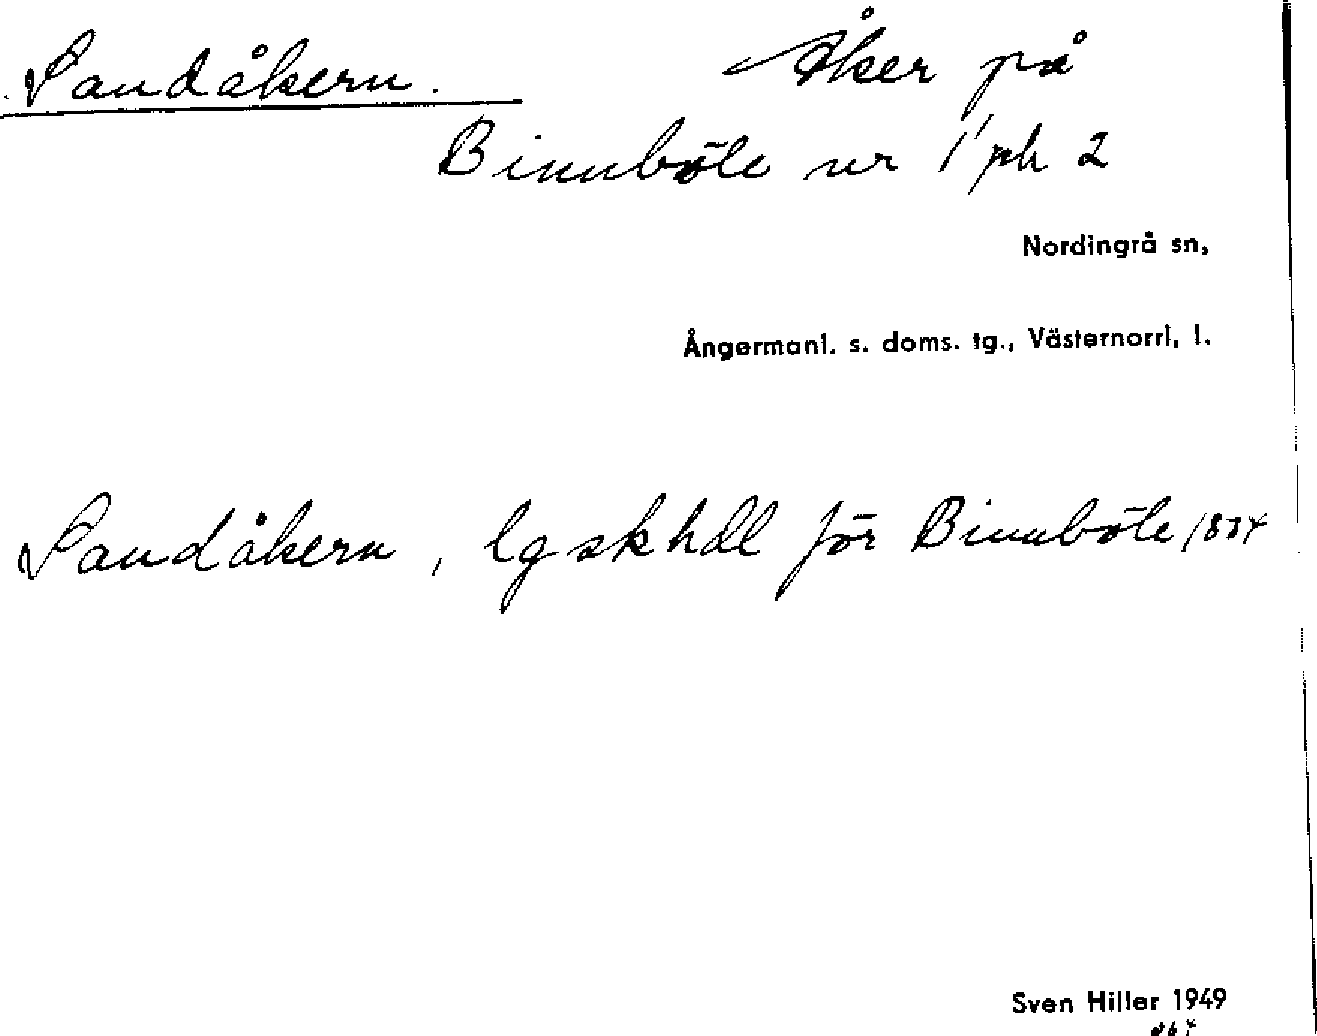 Sandåkern. Åker på
Binnböle nr 1 ph 2
Nordingrå sn,
Ångermanl. s. doms. tg., Västernorrl, l.
Sandåkern, lgskhdl för Binnböle
Sven Hiller 1949